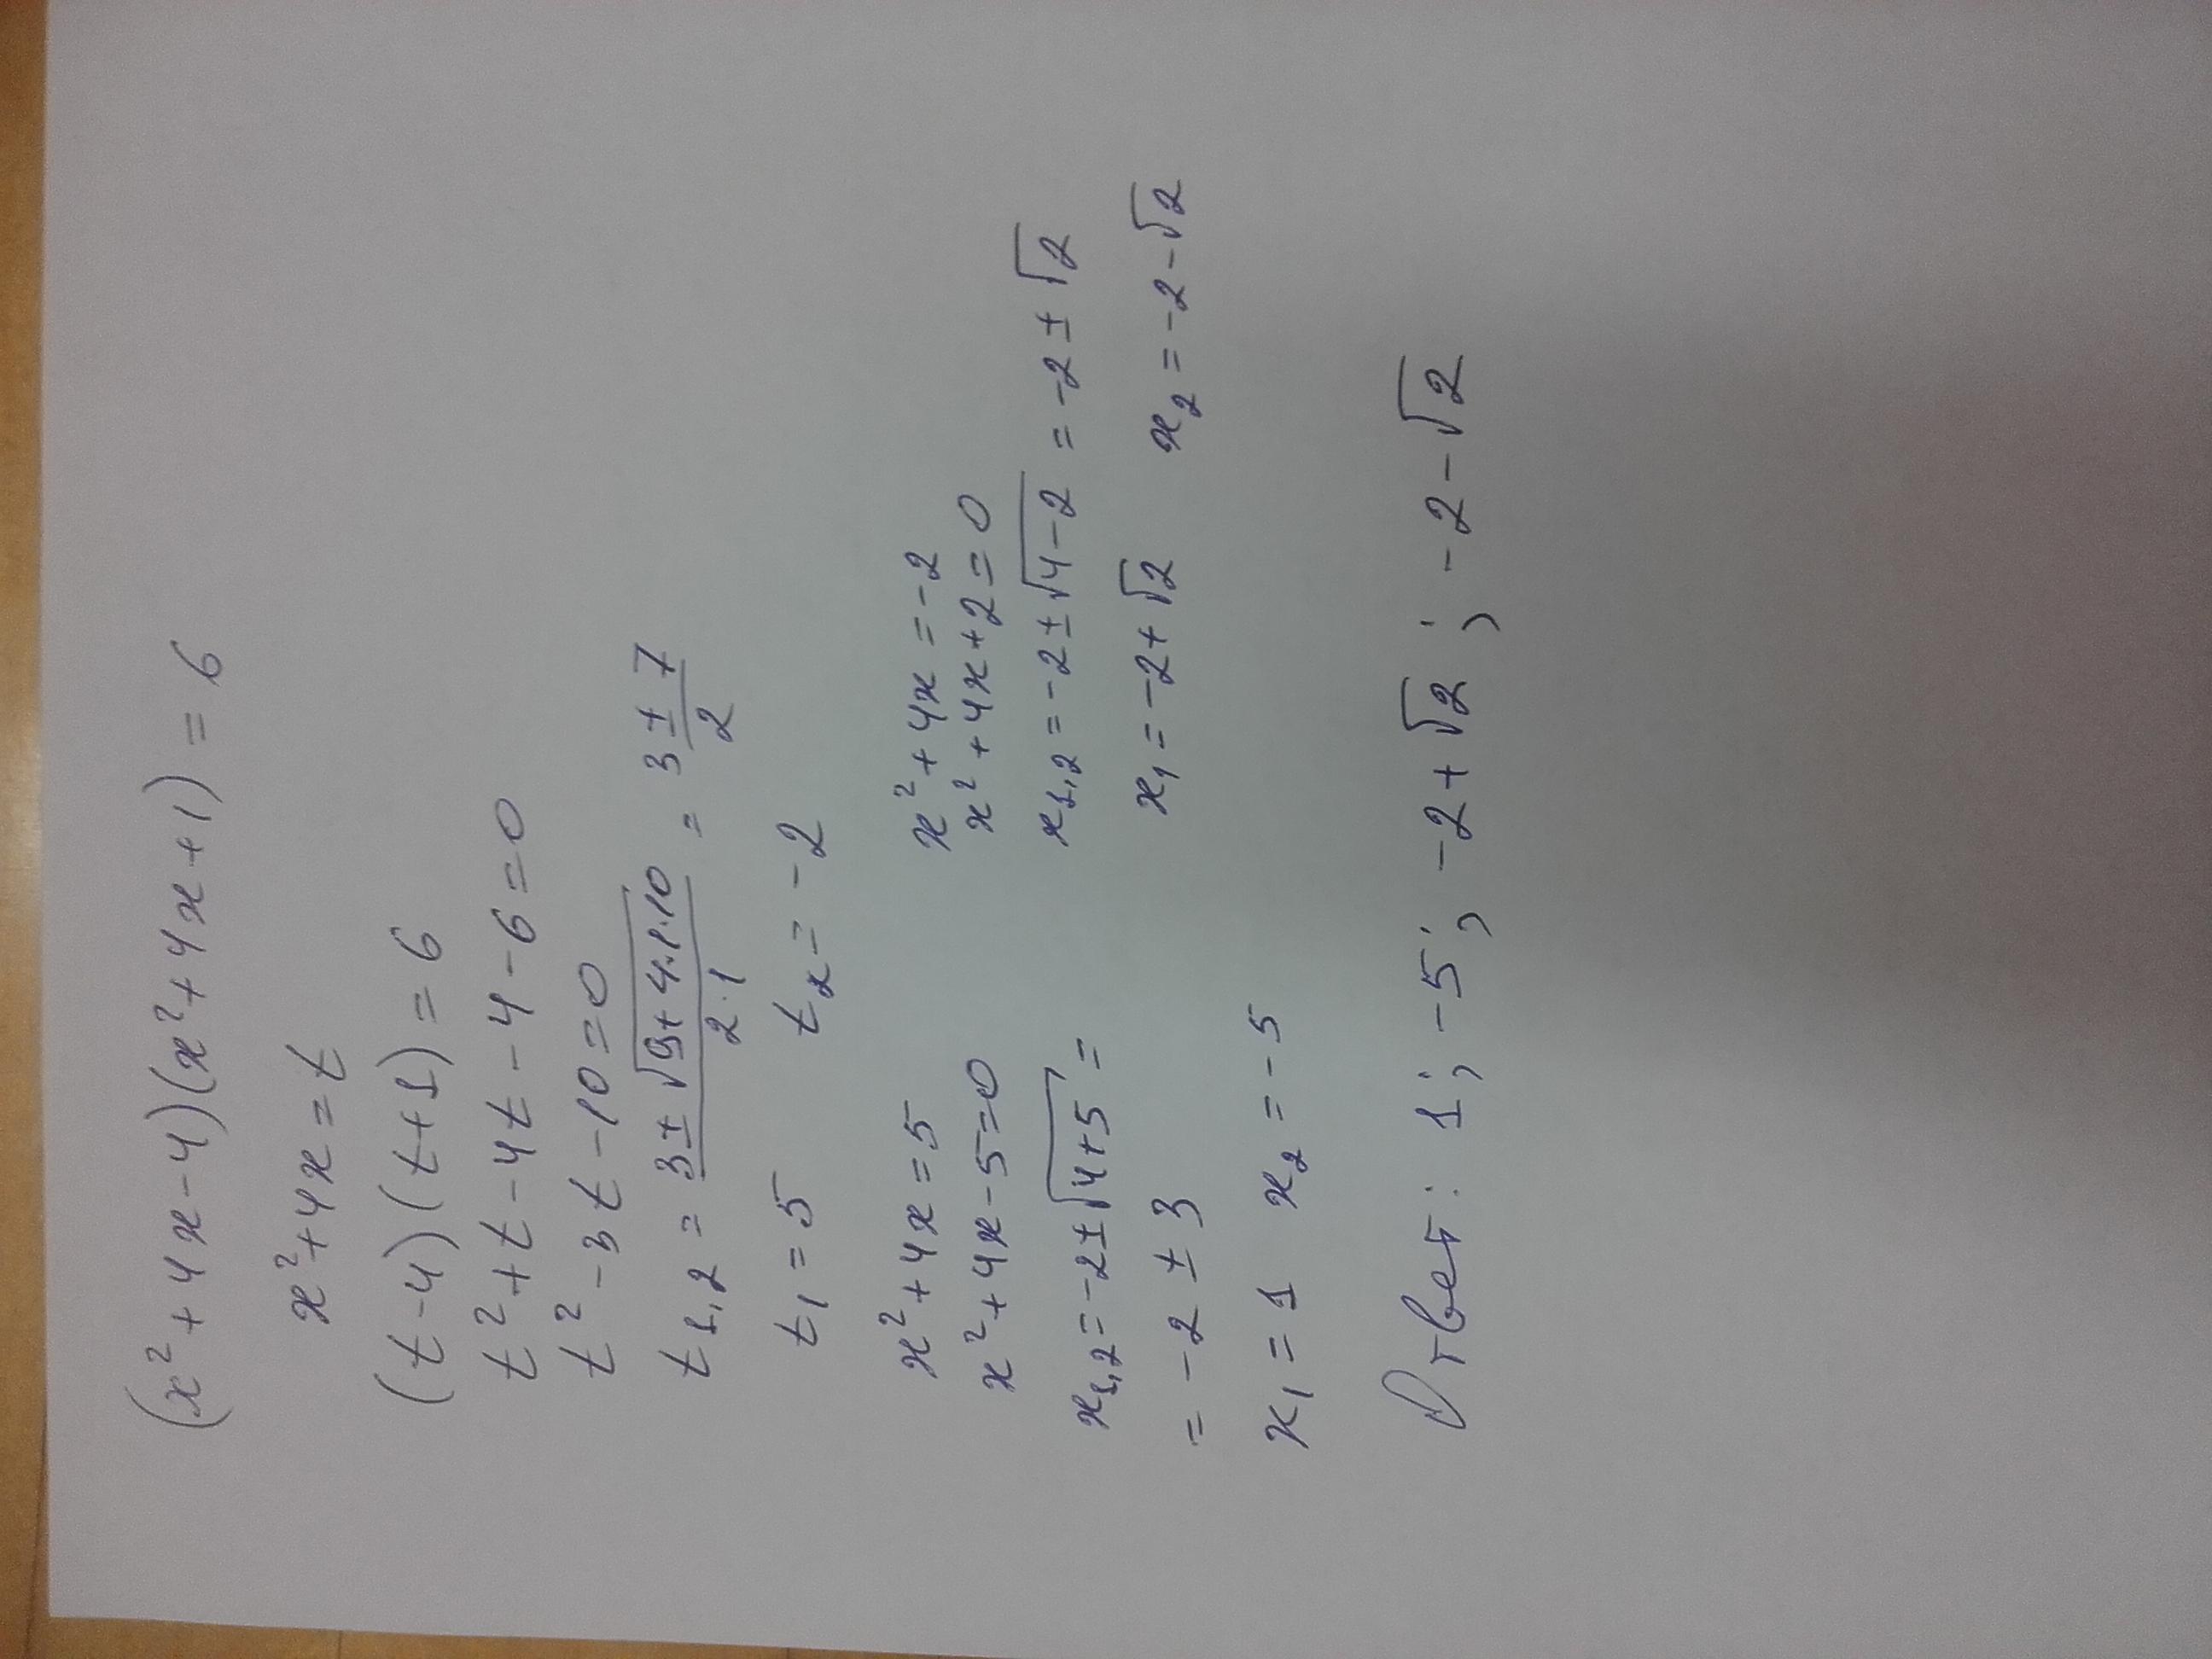 (x² + 4x - 4)(x² + 4x + 1) = 6
x² + 4x = t
(t - 4)(t + 1) = 6
t² + t - 4t - 4 - 6 = 0
t² - 3t - 10 = 0
t₁,₂ = (3 ± √(9 + 4·1·10))/(2·1) = (3 ± 7)/2
t₁ = 5 t₂ = -2
x² + 4x = 5
x² + 4x - 5 = 0
x₁,₂ = -2 ± √(4 + 5) =
= -2 ± 3
x₁ = 1 x₂ = -5
x² + 4x = -2
x² + 4x + 2 = 0
x₁,₂ = -2 ± √(4 - 2) = -2 ± √2
x₁ = -2 + √2 x₂ = -2 - √2
Ответ: 1; -5; -2 + √2; -2 - √2